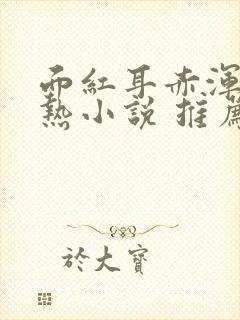 面紅耳赤渾
熱小說 推薦
於大寶